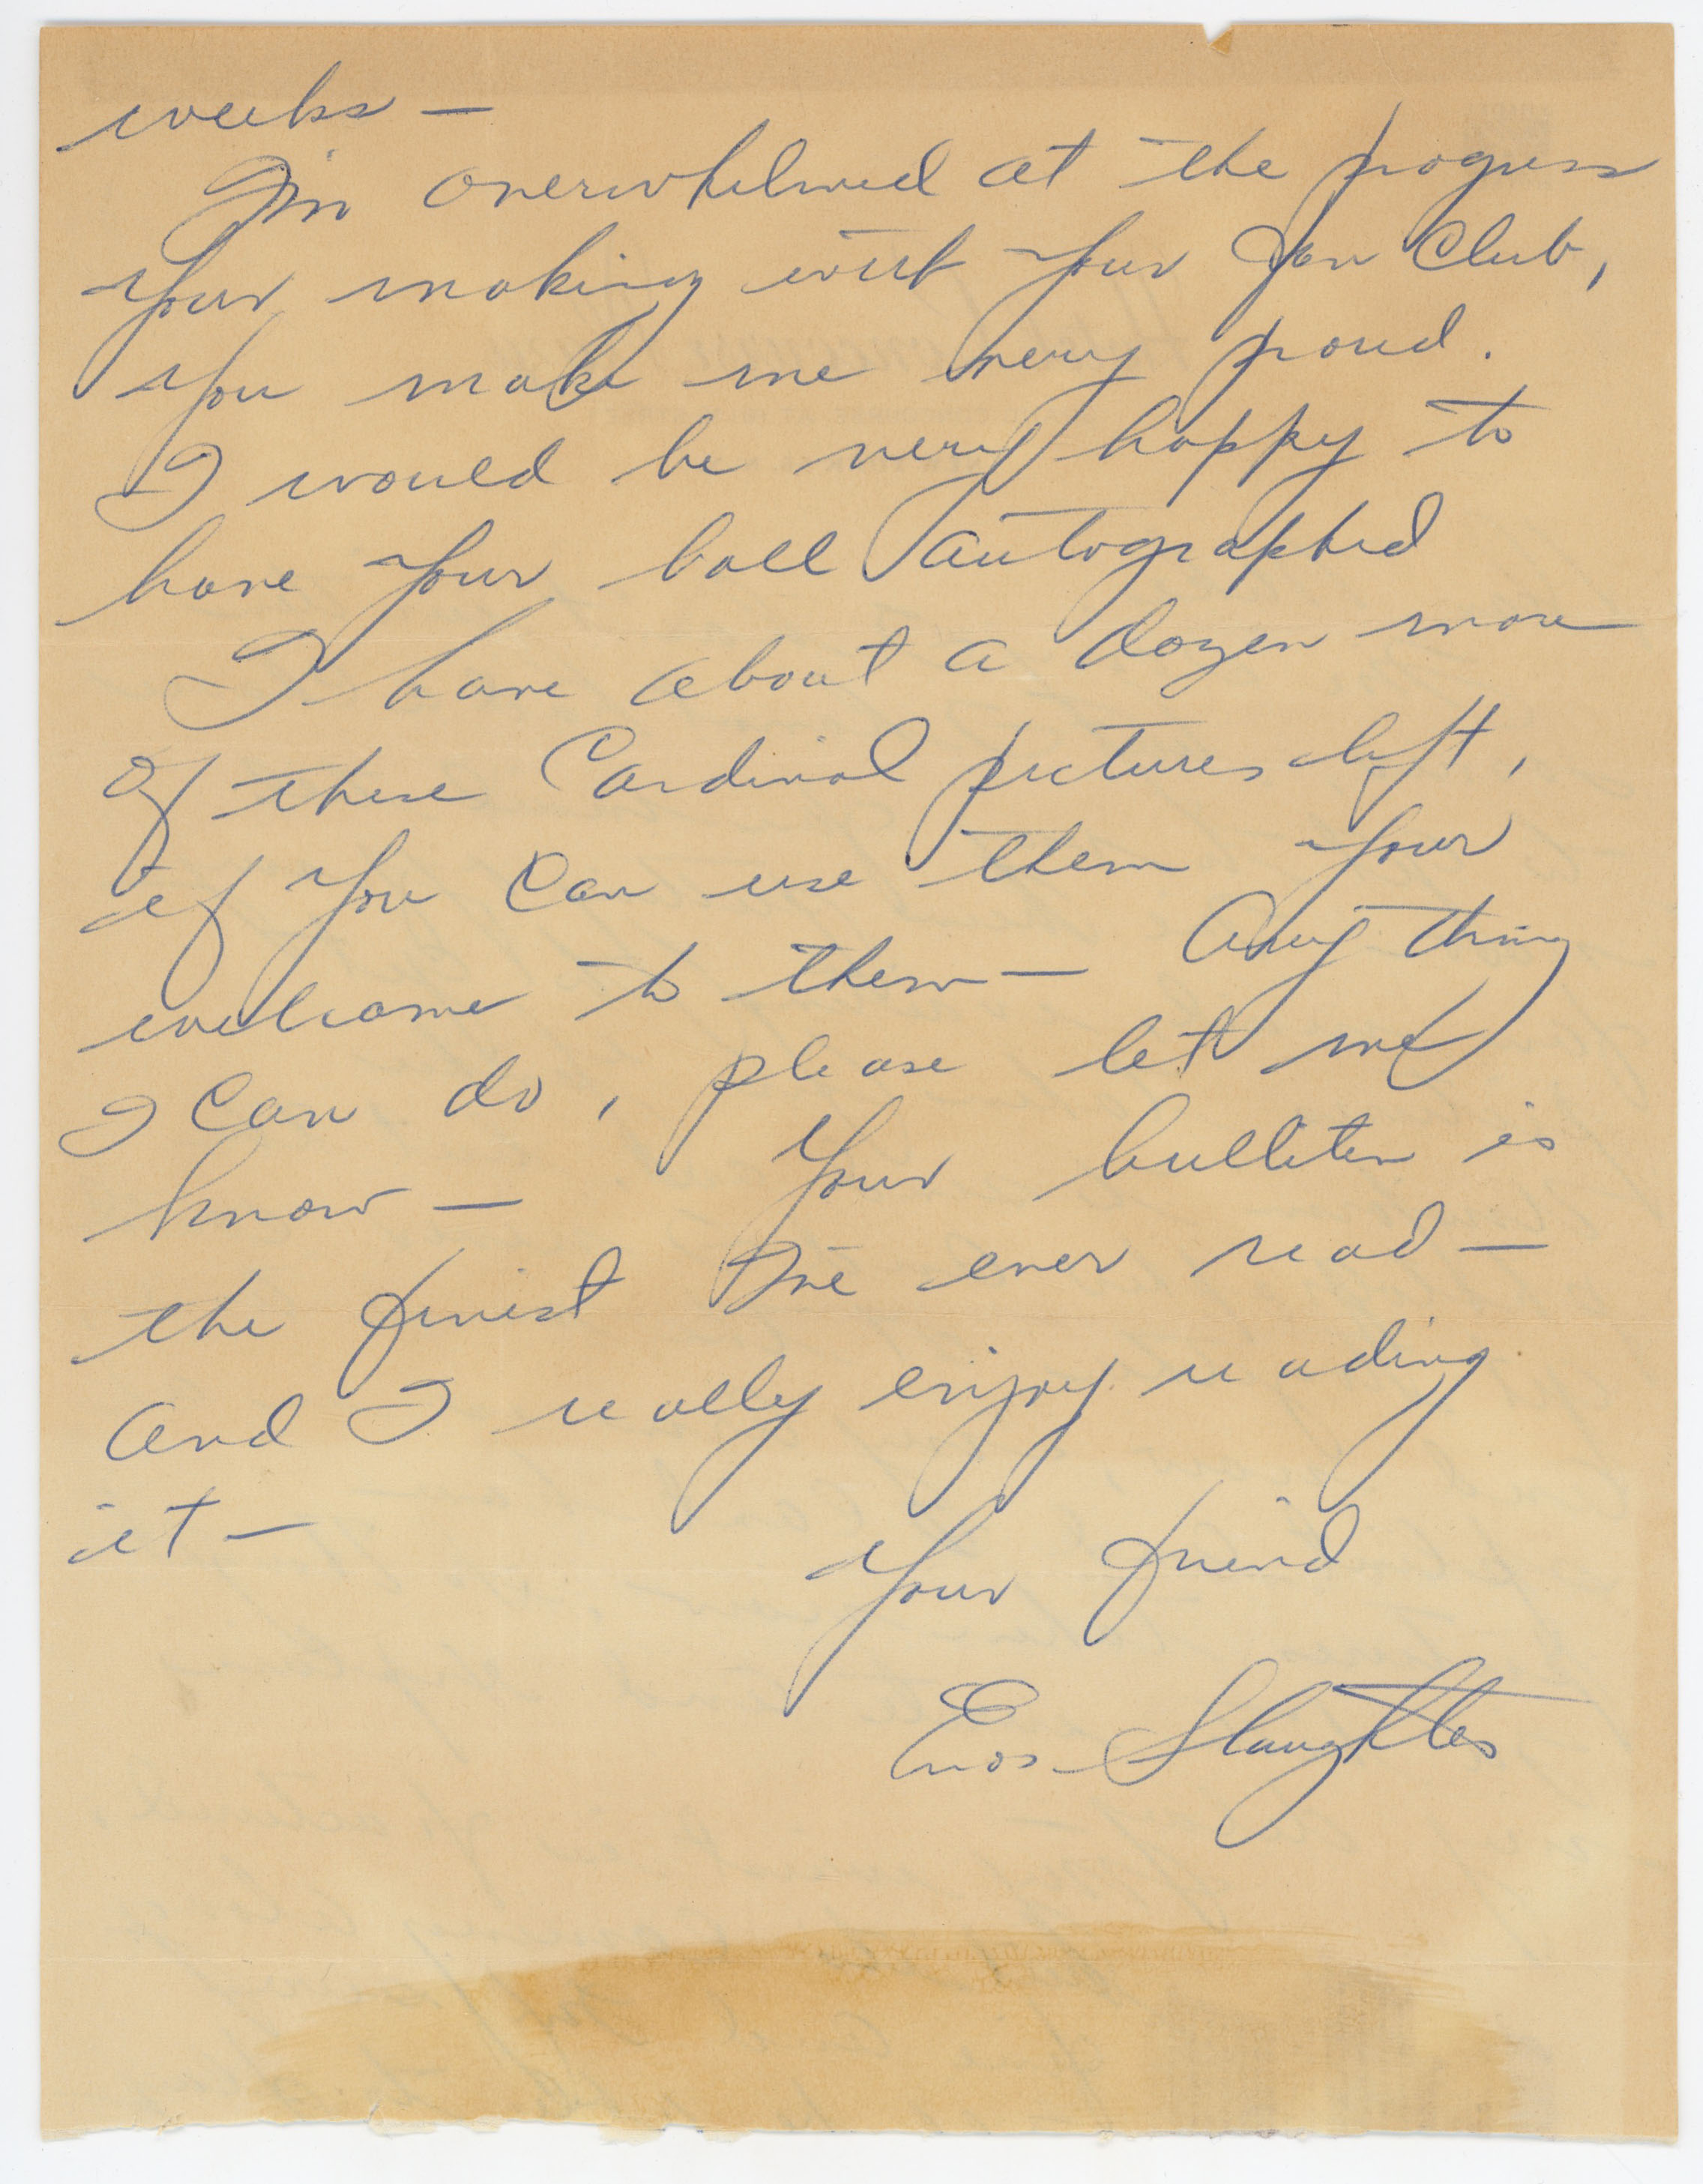 weeks –
I'm overwhelmed at the progress
your making with your Fan Club,
You make me very proud.
I would be very happy to
have your ball autographed
I have about a dozen more
of these Cardinal pictures left,
if you can use them your
welcome to them – Any thing
I can do, please let me
know – Your bulliten is
the finest I've ever read –
And I really enjoy reading
it –
Your friend
Enos Slaughter